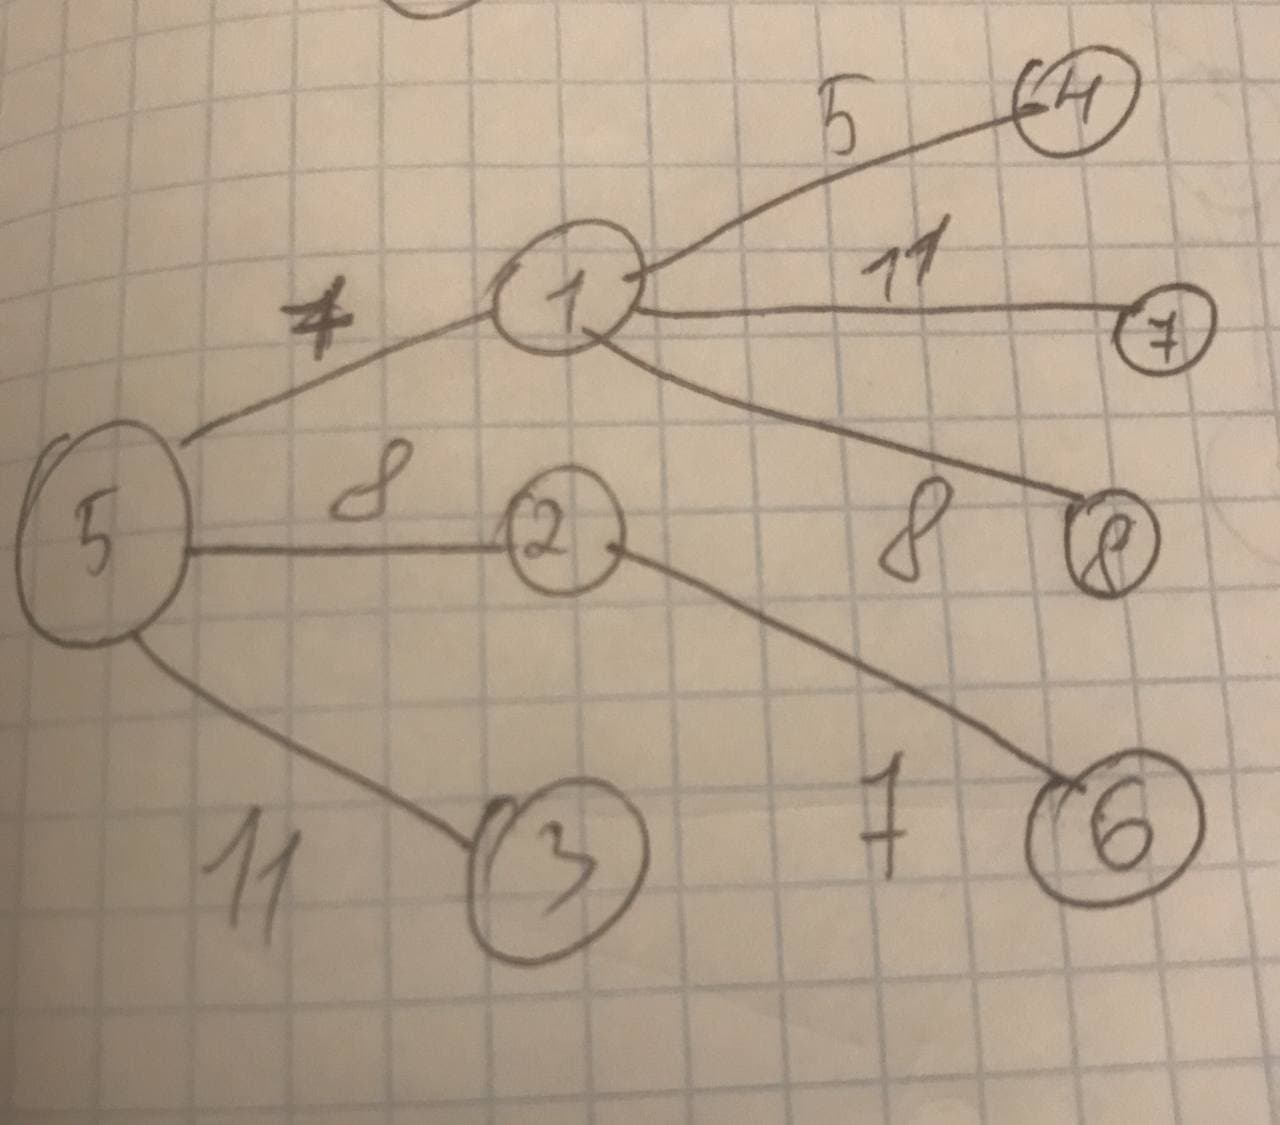 5 4
11
7 1 7
8
5 2 8 8
11 3 7 6